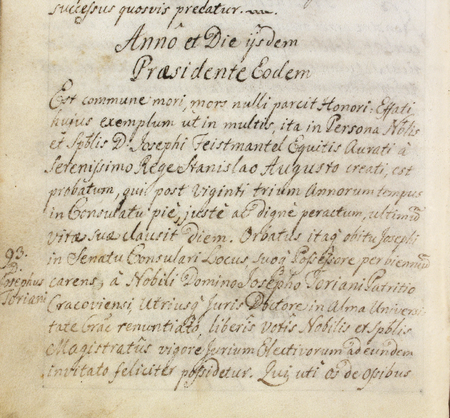 successus quosvis precatur.
Anno et Die ijsdem
Præsidente Eodem
Est commune mori, mors nulli parcit Honori: Effati
huius exemplum ut in multis, ita in Persona Nobis
et Spblis D. Josephi Feistmantel Equitis Aurati à
Serenissimo Rege Stanislao Augusto creati, est
probatum, qui post Viginti trium Annorum tempus
in Consulatu piè, justè ac dignè peractum, ultimum
vitæ suæ clausit Diem. Orbatus itaq obitu Josephi
in Senatu Consulari Locus suoq Possessore per biennium
carens, à Nobili Domino Josepho Toriani Patritio
Cracoviensi, Utriusq Juris Doctore in Alma Universi
tate Crac renuntiato, liberis votis Nobilis et Spblis
Magistratûs vigore Jurium Electivorum ad eundem
invitato feliciter possidetur. Qui uti os de ossibus
93.
D.
Josephus
Toriani